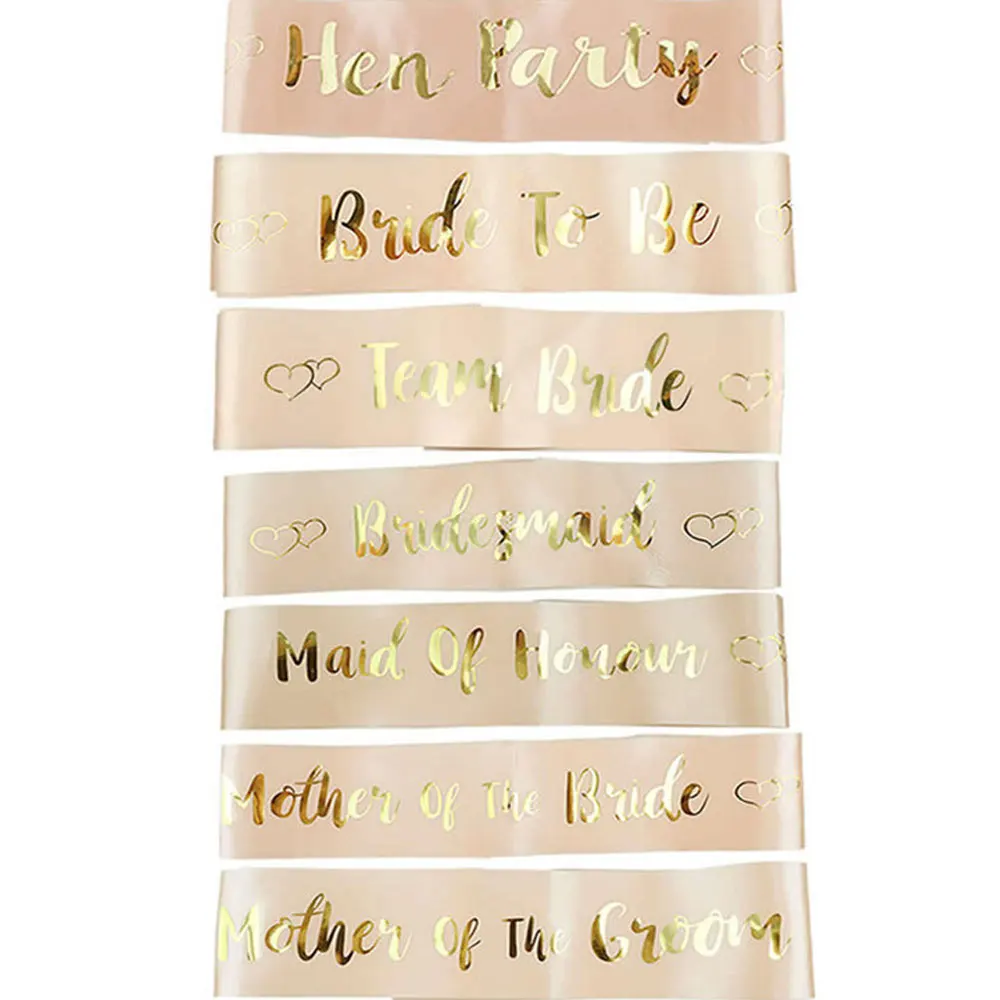 Hen Party
Bride To Be
Team Bride
Bridesmaid
Maid Of Honour
Mother Of The Bride
Mother Of The Groom